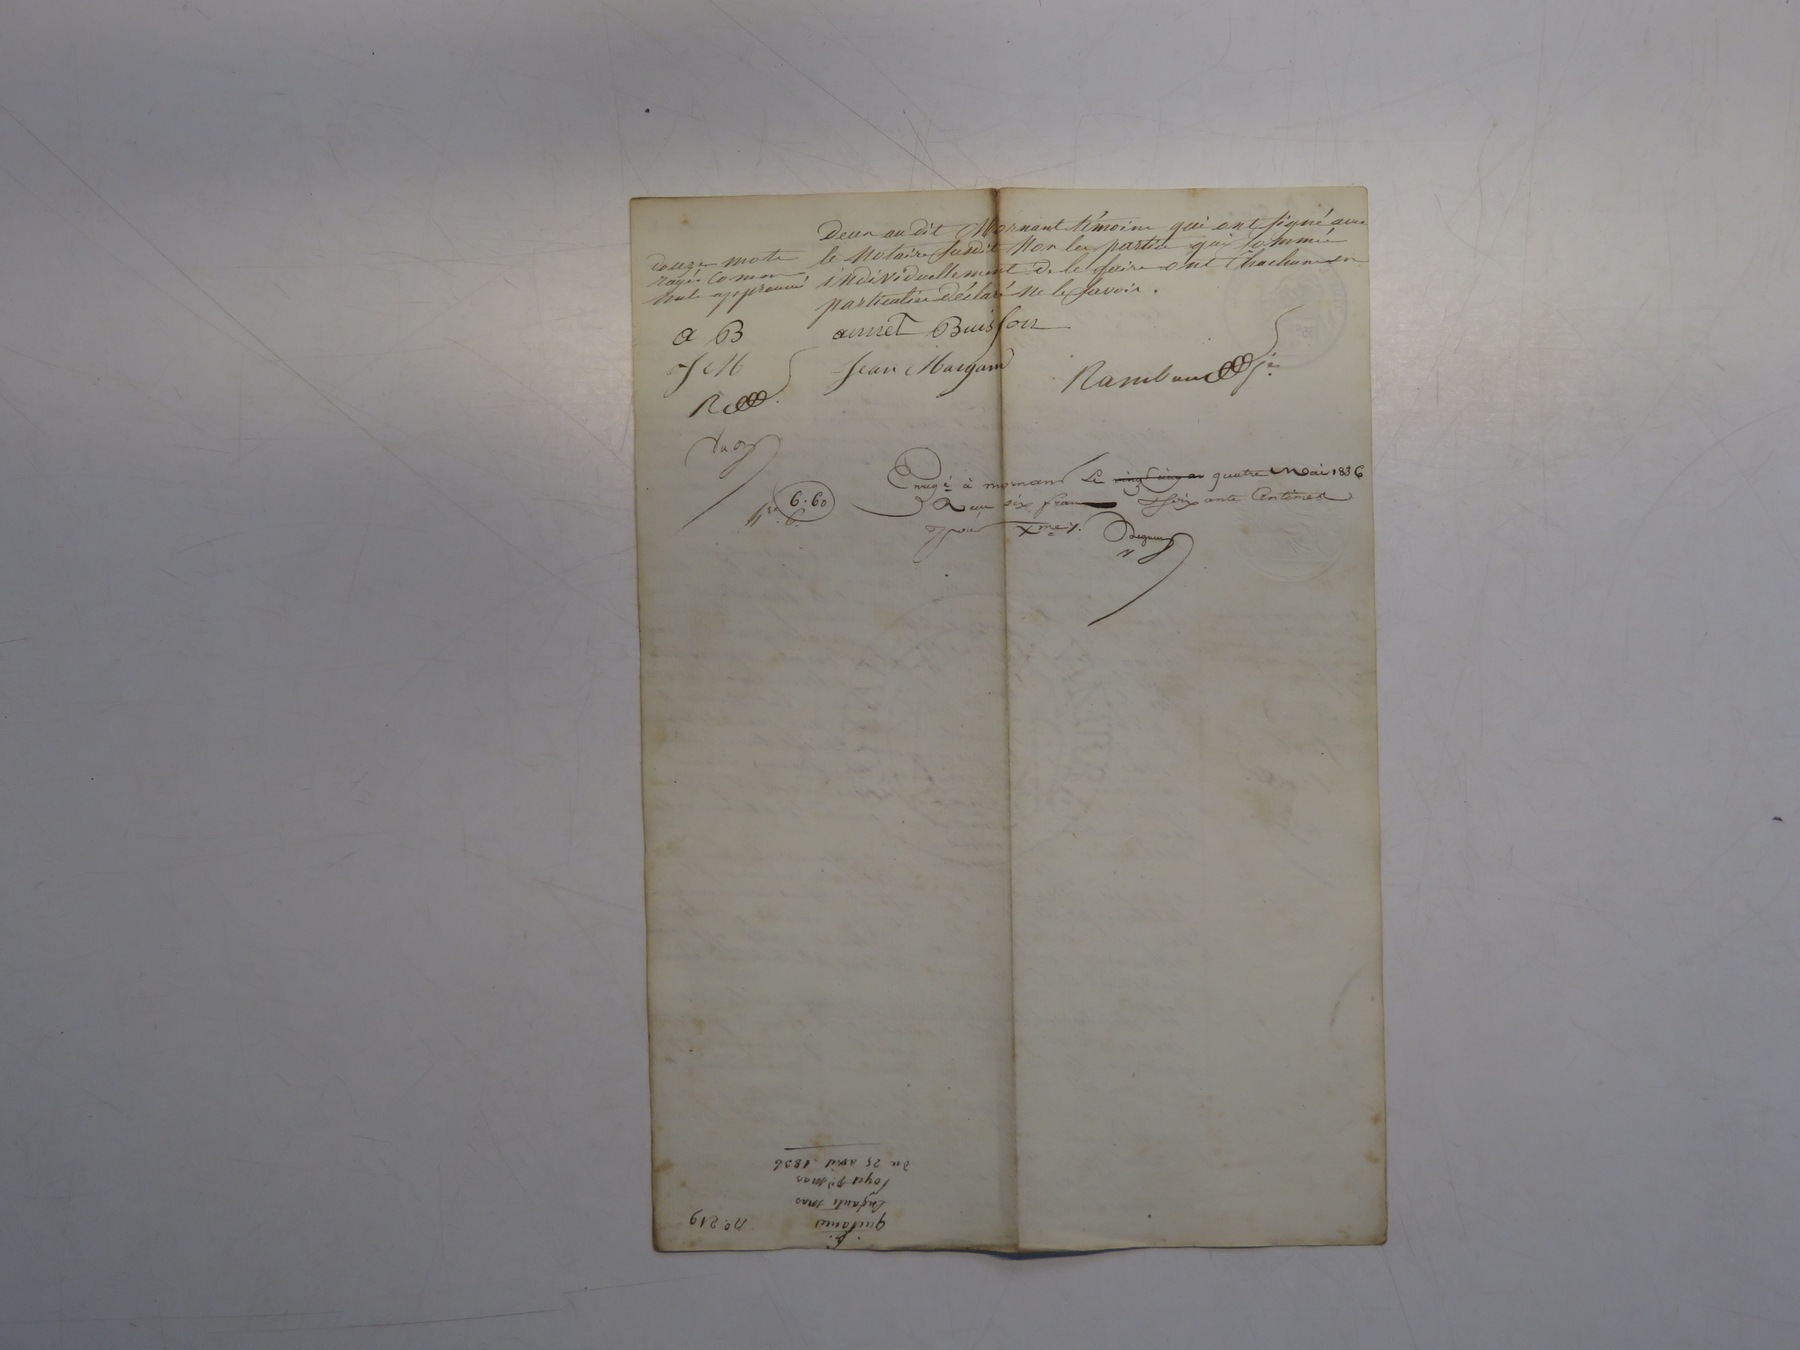 Deux audit Mornant témoins qui ont signé avec
le Notaire susdit Non les parties qui sommées
individuellement de le faire ont Chachune en
particulier déclaré ne le savoir.
douze mots
rayés comme
nuls approuvés
a B
amet Buisson
J M
Jean Margand
Rambaud
R
Enregé à mornant Le vingt cinq av quatre Mai 1836
Reçu six francs soixante Centimes
pour Xme %.
6.60
N° 219
quitance
Enfants mas
du 25 avril 1836